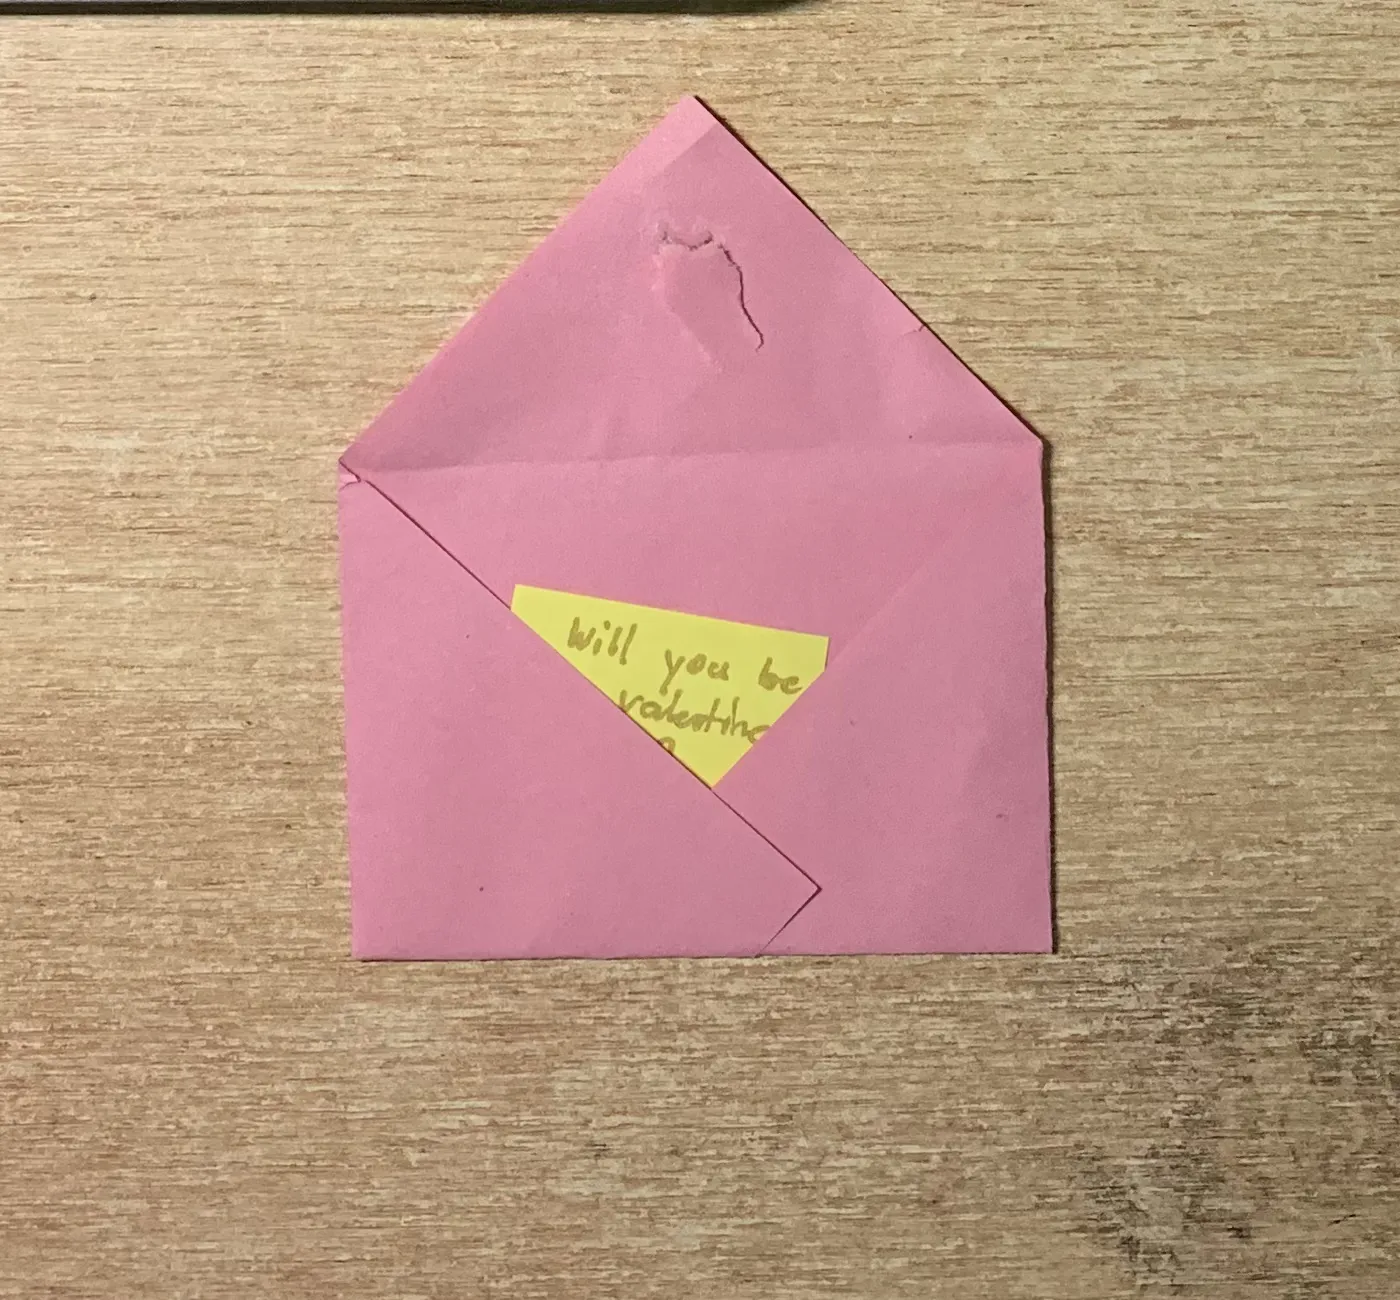 Will you be
valentine
?